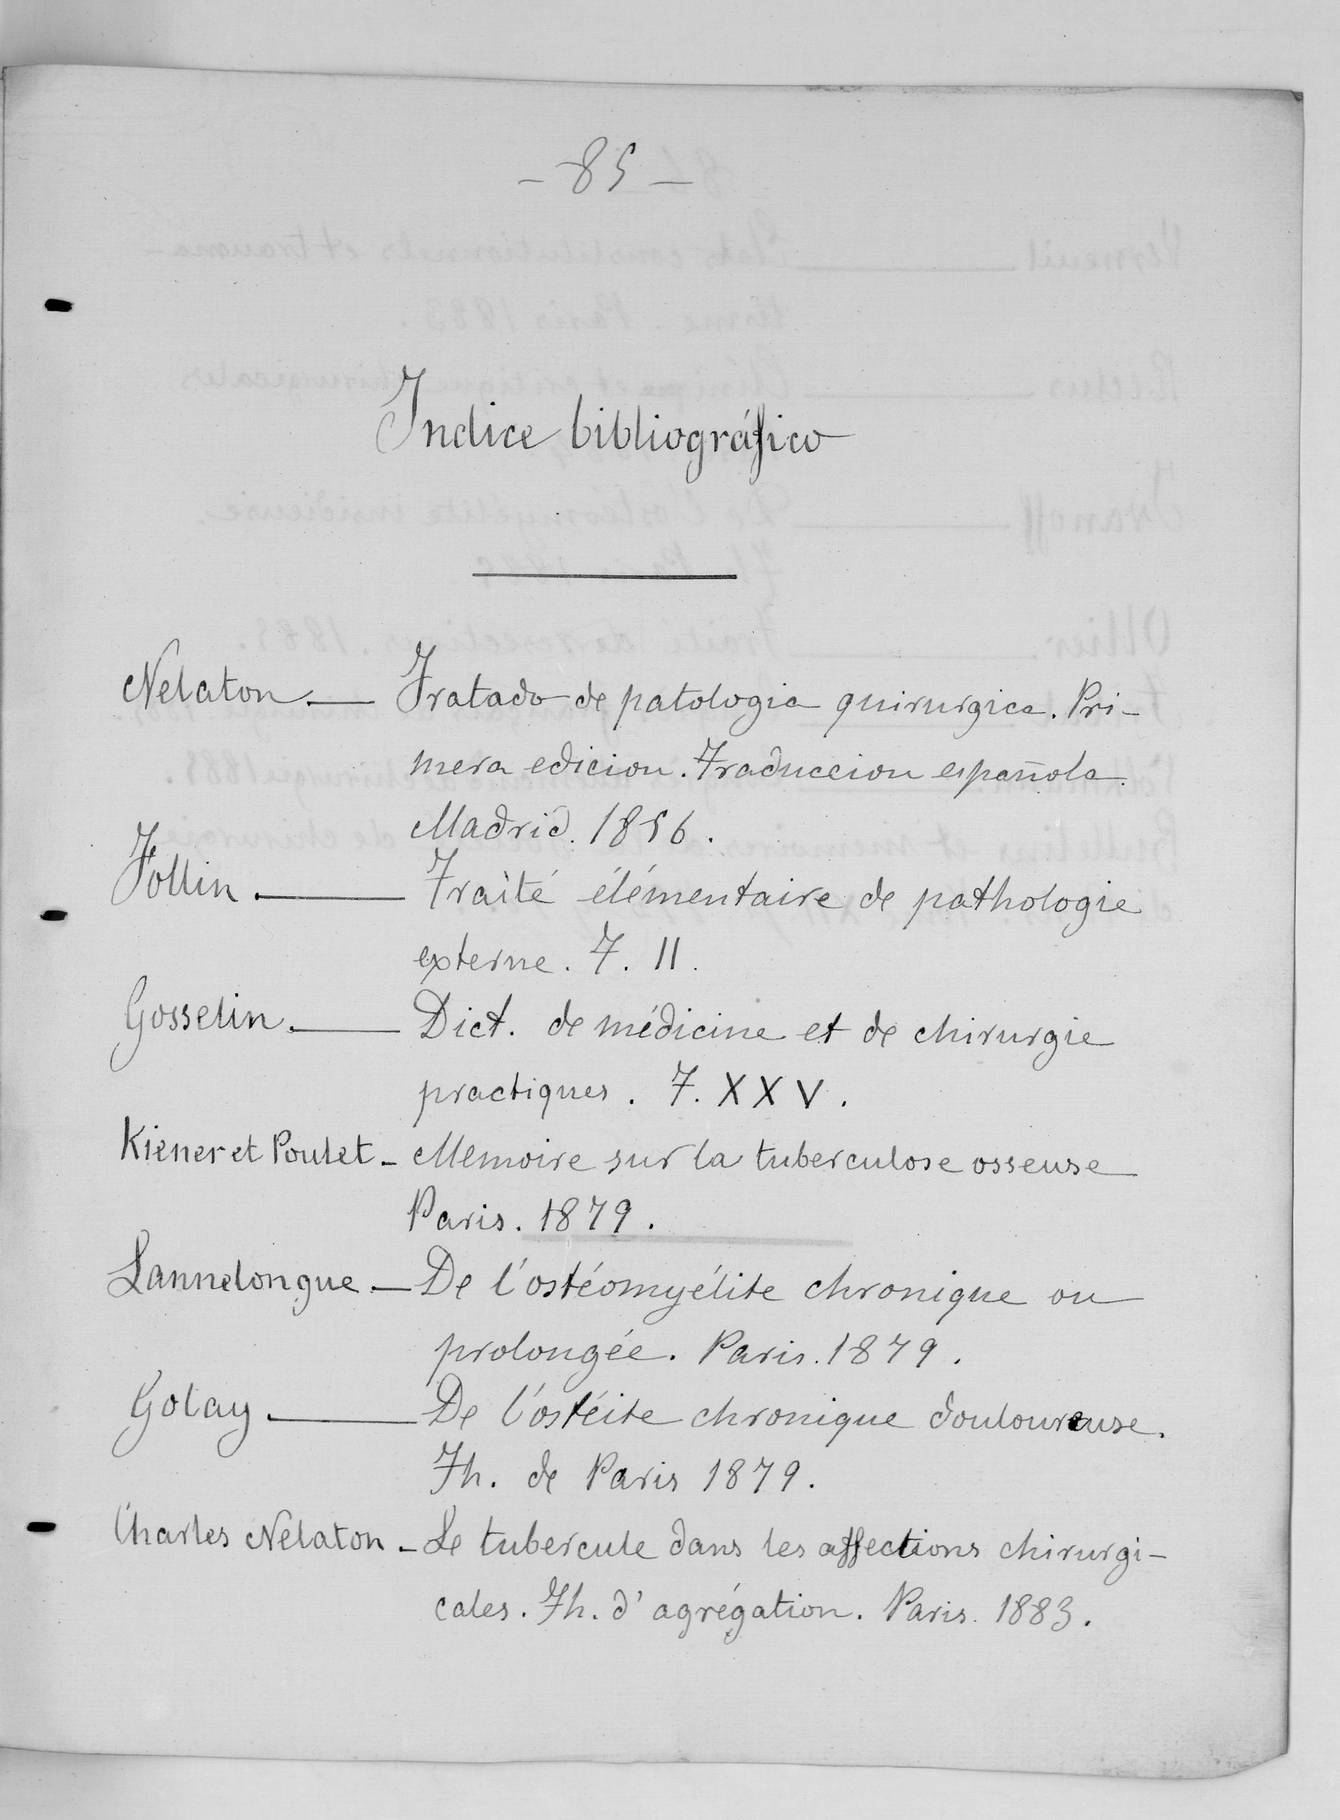 - 85 -
Indice bibliográfico
Nelaton. — Tratado de patologia quirurgica. Pri-
mera edicion. Traduccion española.
Madrid. 1856.
Follin. — Traité élémentaire de pathologie
externe. T. II.
Gosselin. — Dict. de médicine et de chirurgie
practiques. T. XXV.
Kiener et Poulet - Memoire sur la tuberculose osseuse
Paris. 1879.
Lannelongue. — De l'ostéomyélite chronique ou
prolongée. Paris. 1879.
Golay. — De l'ostéite chronique douloureuse.
Th. de Paris 1879.
Charles Nelaton - Le tubercule dans les affections chirurgi-
cales. Th. d'agrégation. Paris. 1883.